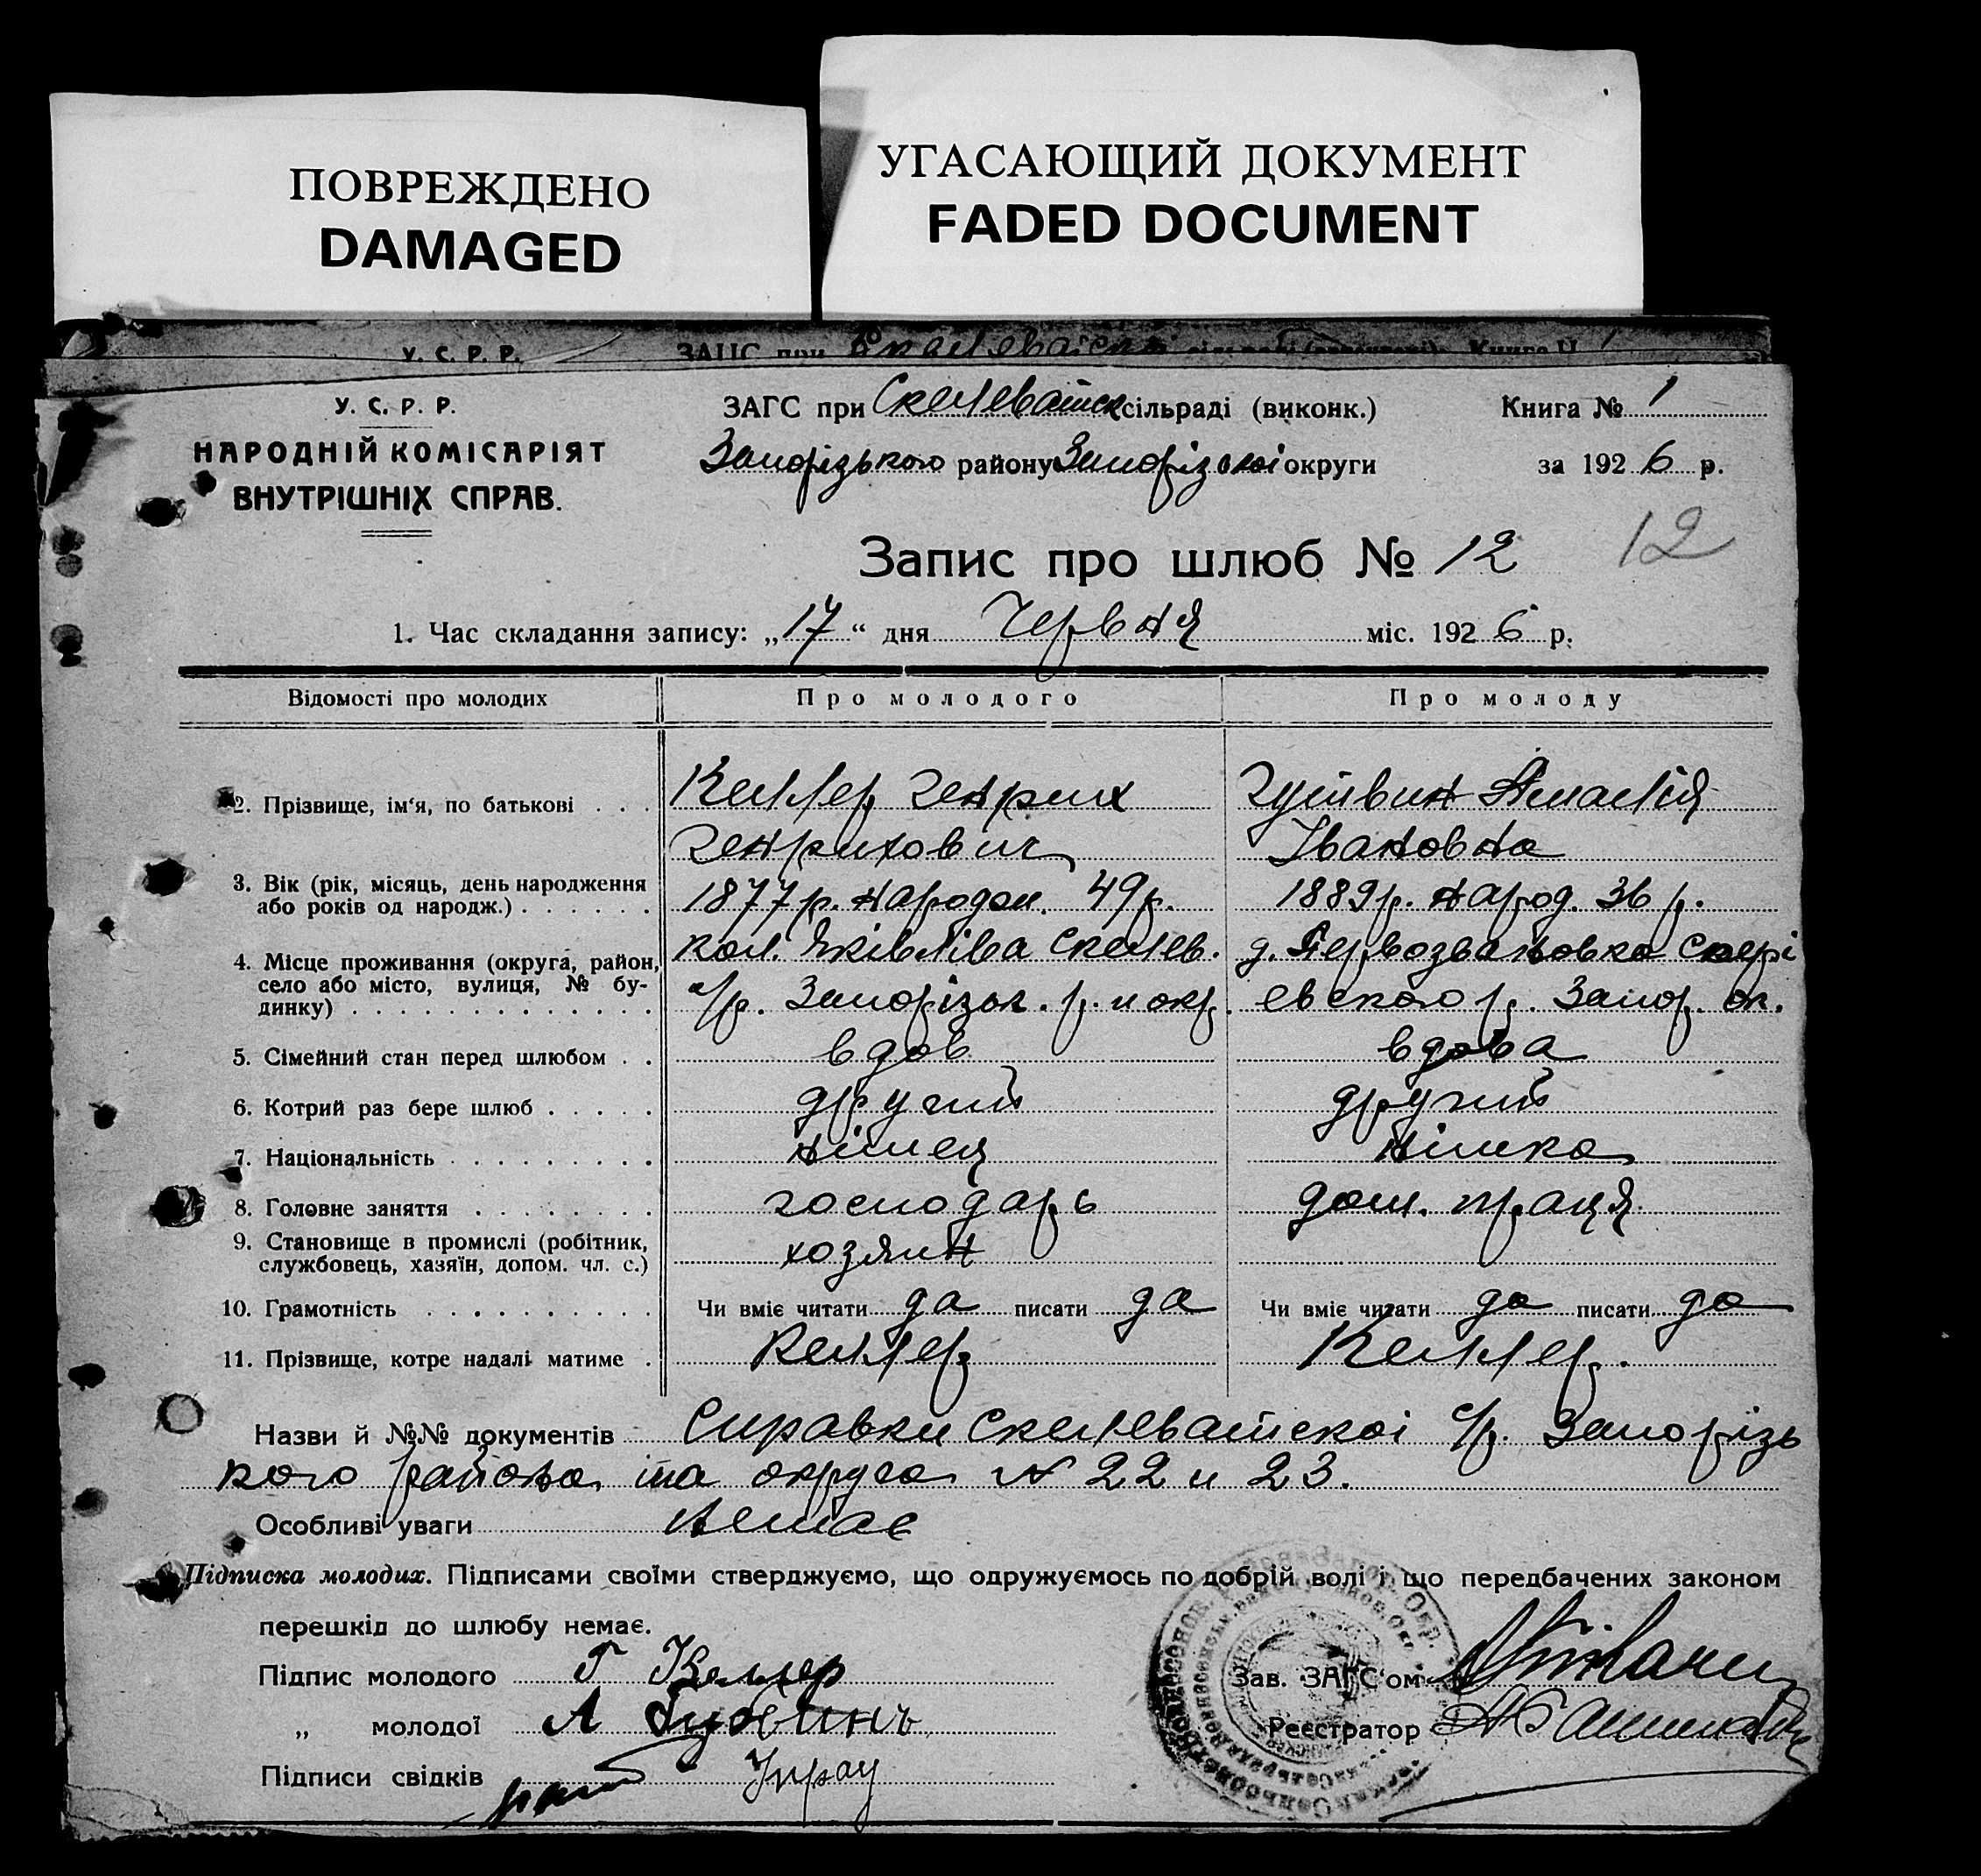 ПОВРЕЖДЕНО
DAMAGED
УГАСАЮЩИЙ ДОКУМЕНТ
FADED DOCUMENT
У. С. Р. Р. ЗАГС при
У. С. Р. Р.
НАРОДНІЙ КОМІСАРІЯТ
ВНУТРІШНІХ СПРАВ.
ЗАГС при Скелеватск сільраді (виконк.) Книга № 1
Запорізького району Запорізької округи за 1926 р.
12
Запис про шлюб № 12
1. Час складання запису: „17“ дня Червня міс. 1926 р.
Відомості про молодих Про молодого Про молоду
2. Прізвище, ім'я, по батькові . . . Келлер Генрих Гутвин Амалія
Генрихович Івановна
3. Вік (рік, місяць, день народження 1877 р. народж. 49 р. 1889 р. народ. 36 р.
або років од народж.) . . . . . .
4. Місце проживання (округа, район, кол. Яківліва Скелев. д. Первозвановка
село або місто, вулиця, № бу- с/р. Запорізьк. р. и окр. евского р. Запор. ок.
динку) . . . . . . . . . . . . .
5. Сімейний стан перед шлюбом . . вдов вдова
6. Котрий раз бере шлюб . . . . . другий другий
7. Національність . . . . . . . . . німець німка
8. Головне заняття . . . . . . . . господарь дом. праця
9. Становище в промислі (робітник, хозяин
службовець, хазяїн, допом. чл. с.)
10. Грамотність . . . . . . . . . . Чи вміє читати да писати да Чи вміє читати да писати да
11. Прізвище, котре надалі матиме . Келлер Келлер.
Назви й №№ документів Справки Скелеватскої с/р. Запорізь
кого района та округа № 22 и 23.
Особливі уваги немає
Підписка молодих. Підписами своїми стверджуємо, що одружуємось по добрій волі і що передбачених законом
перешкід до шлюбу немає.
Підпис молодого Г Келлер Зав. ЗАГС'ом
„ молодої А Гутвинъ Реєстратор
Підписи свідків